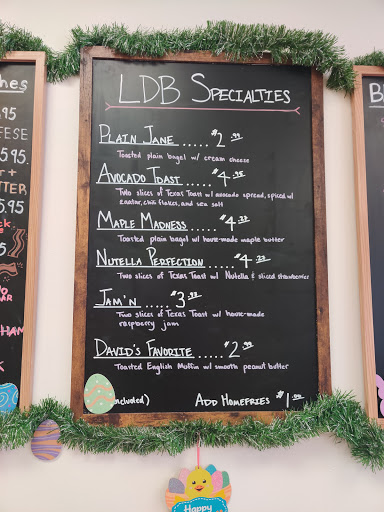 LDB Specialties
Plain Jane ..... $2.99
Toasted plain bagel w/ cream cheese
Avocado Toast ..... $4.95
Two slices of Texas Toast w/ avocado spread, spiced w/
zaatar, chili flakes, and sea salt
Maple Madness ..... $4.25
Toasted plain bagel w/ house-made maple butter
Nutella Perfection ..... $4.25
Two slices of Texas Toast w/ Nutella & sliced strawberries
Jam'n ..... $3.99
Two slices of Texas Toast w/ house-made
raspberry jam
David's Favorite ..... $2.99
Toasted English Muffin w/ smooth peanut butter
Add Homefries $1
Happy